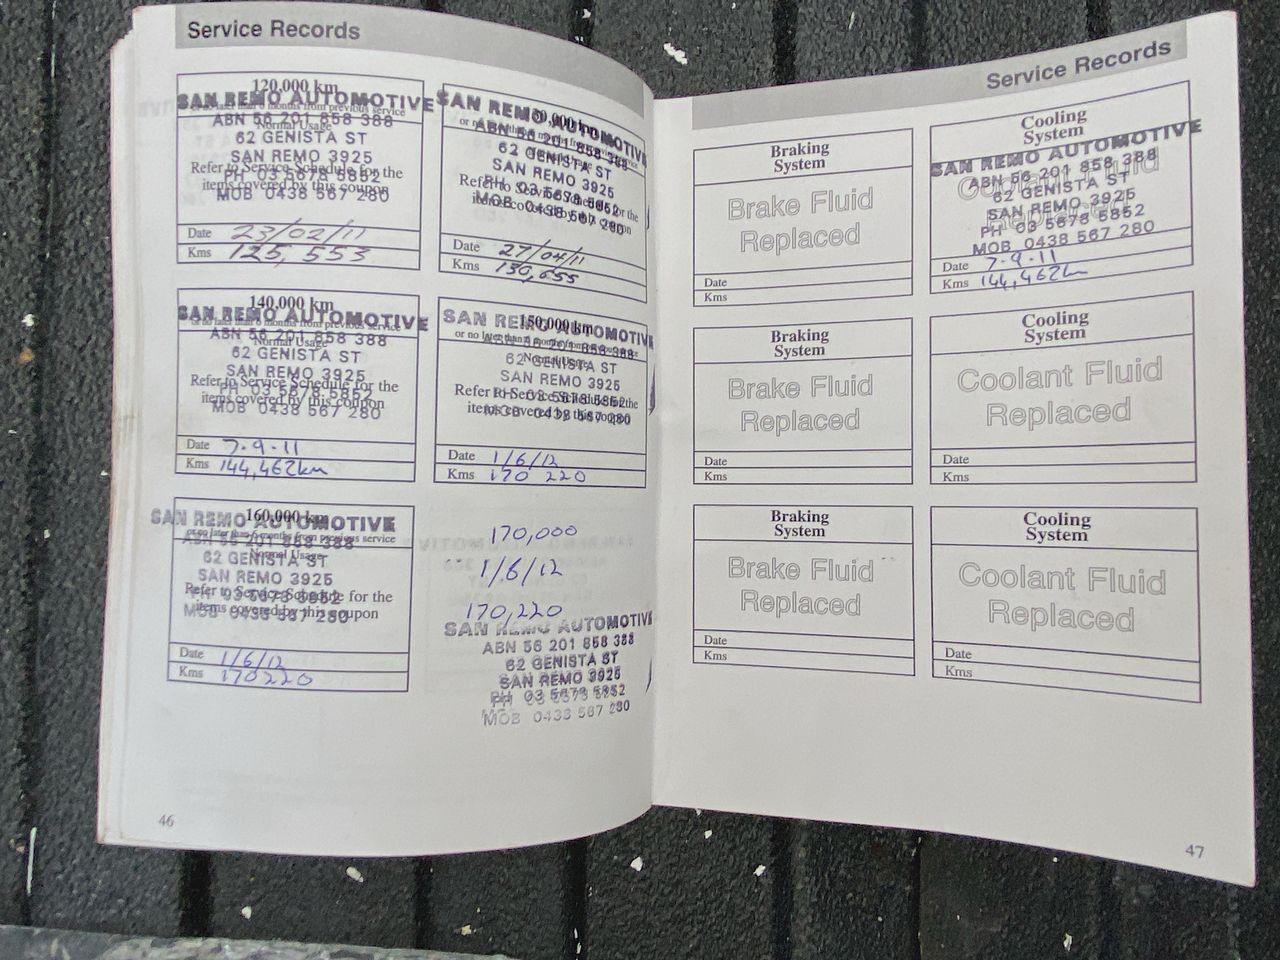 Service Records
120,000 km
SAN REMO AUTOMOTIVE
or no later than 6 months from previous service
ABN 56 201 858 388
Normal Usage
62 GENISTA ST
SAN REMO 3925
Refer to Service Schedule for the
PH 03 5678 5852
items covered by this coupon
MOB 0438 567 280
Date 23/02/11
Kms 125,553
SAN REMO AUTOMOTIVE
ABN 56 201 858 388
62 GENISTA ST
SAN REMO 3925
Refer to Service Schedule for the
PH 03 5678 5852
items covered by this coupon
MOB 0438 567 280
Date 27/04/11
Kms 130,655
140,000 km
SAN REMO AUTOMOTIVE
or no later than 6 months from previous service
ABN 56 201 858 388
Normal Usage
62 GENISTA ST
SAN REMO 3925
Refer to Service Schedule for the
PH 03 5678 5852
items covered by this coupon
MOB 0438 567 280
Date 7.9.11
Kms 144,462km
150,000 km
SAN REMO AUTOMOTIVE
or no later than 6 months from previous service
ABN 56 201 858 388
Normal Usage
62 GENISTA ST
SAN REMO 3925
Refer to Service Schedule for the
PH 03 5678 5852
items covered by this coupon
MOB 0438 567 280
Date 1/6/12
Kms 170 220
160,000 km
SAN REMO AUTOMOTIVE
or no later than 6 months from previous service
ABN 56 201 858 388
Normal Usage
62 GENISTA ST
SAN REMO 3925
Refer to Service Schedule for the
PH 03 5678 5852
items covered by this coupon
MOB 0438 567 280
Date 1/6/12
Kms 170220
170,000
1/6/12
170,220
SAN REMO AUTOMOTIVE
ABN 56 201 858 388
62 GENISTA ST
SAN REMO 3925
PH 03 5678 5852
MOB 0438 567 280
46
Service Records
Braking
System
Brake Fluid
Replaced
Date
Kms
Cooling
System
SAN REMO AUTOMOTIVE
Coolant Fluid
ABN 56 201 858 388
62 GENISTA ST
Replaced
SAN REMO 3925
PH 03 5678 5852
MOB 0438 567 280
Date 7.9.11
Kms 144,462km
Braking
System
Brake Fluid
Replaced
Date
Kms
Cooling
System
Coolant Fluid
Replaced
Date
Kms
Braking
System
Brake Fluid
Replaced
Date
Kms
Cooling
System
Coolant Fluid
Replaced
Date
Kms
47